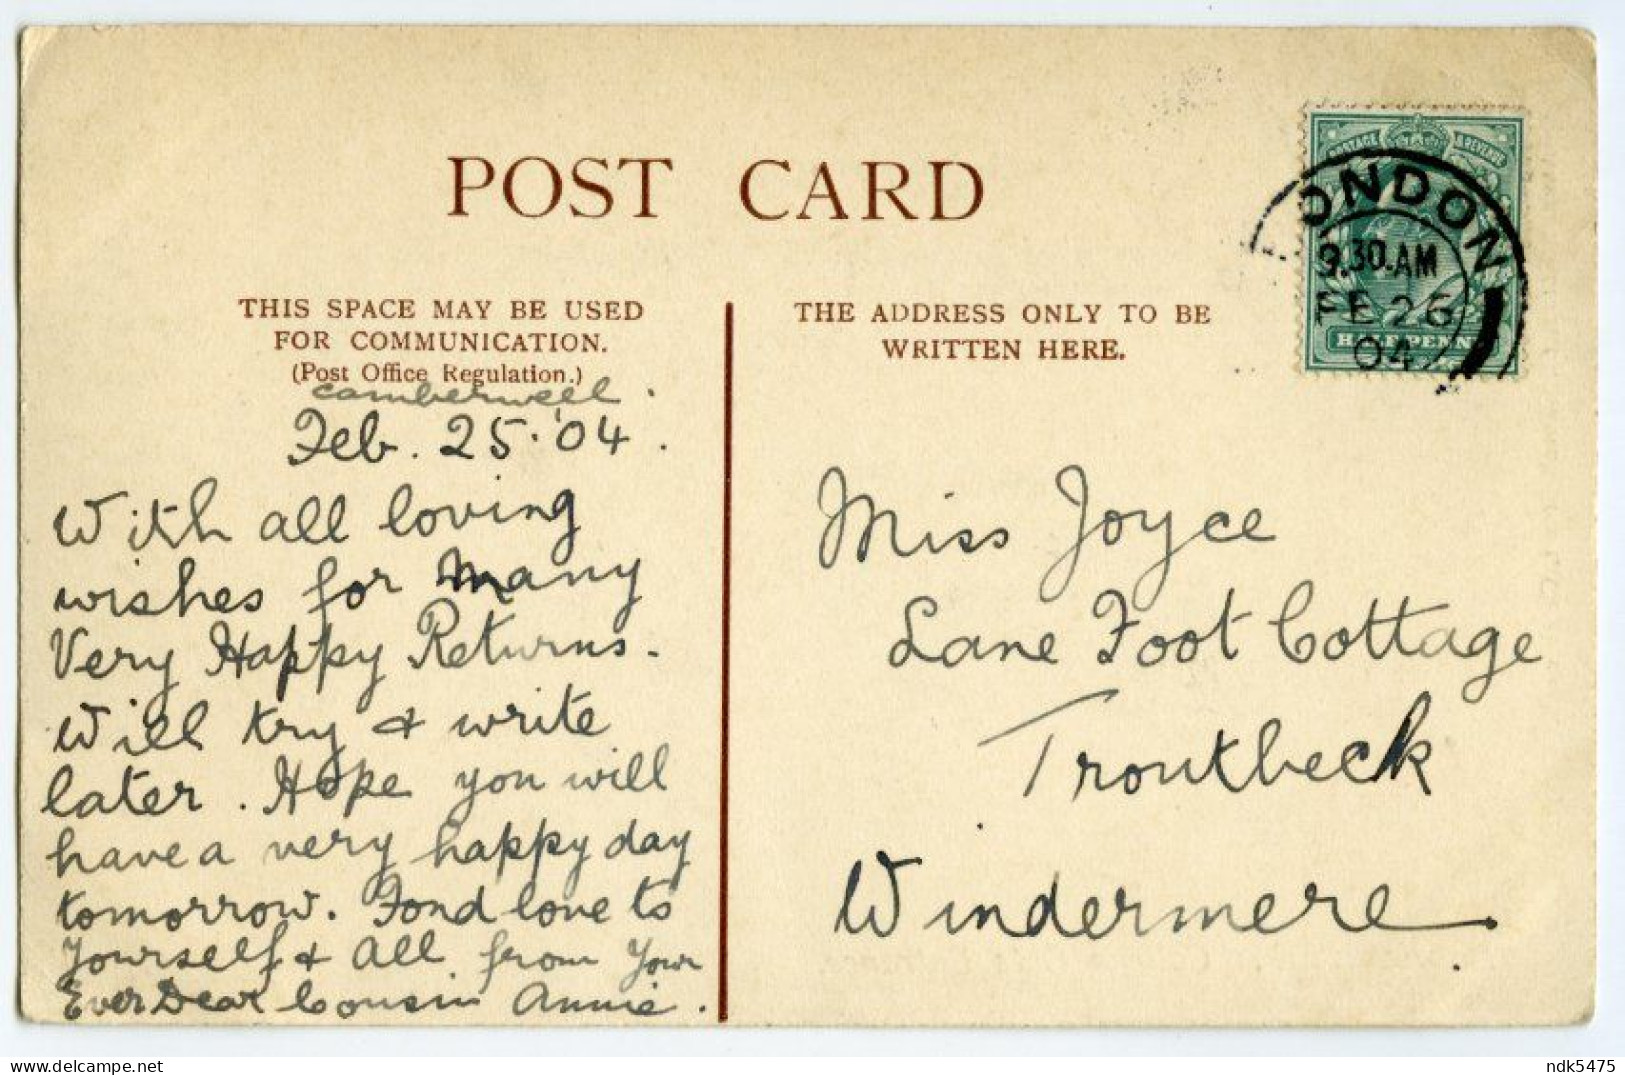 POST CARD
THIS SPACE MAY BE USED
FOR COMMUNICATION.
(Post Office Regulation.)
THE ADDRESS ONLY TO BE
WRITTEN HERE.
POSTAGE & REVENUE
HALFPENNY
LONDON
9.30.AM
FE 26
04
Camberwell.
Feb. 25. '04.
With all loving
wishes for many
Very Happy Returns.
Will try & write
later. Hope you will
have a very happy day
tomorrow. Fond love to
Yourself & All from Your
Ever Dear Cousin Annie.
Miss Joyce
Lane Foot Cottage
Troutbeck
Windermere.
ndk5475